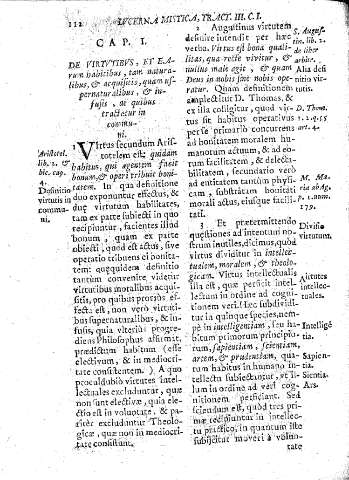 112 LUCERNA MISTICA, TRACT. III. C. I.
CAP. I.
DE VIRTUTIBUS, ET EA-
rum habitibus, tam natura-
libus, & acquisitis, quam su-
pernaturalibus, & in-
fusis, de quibus
tractetur in
commu-
ni.
Aristotel.
lib. 2. &
bic. cap.
4.
Definitio
virtutis in
commu-
ni.
1 Virtus secundum Aris-
totelem est: quidam
habitus, qui agentem facit
bonum, & operi tribuit boni-
tatem. In qua definitione
duo exponuntur effectus, &
duę virtutum habilitates,
tam ex parte subiecti in quo
recipiuntur, facientes illud
bonum, quam ex parte
obiecti, quod est actus, sive
operatio tribuens ei bonita-
tem: quęquidem definitio
tantum convenire videtur
virtutibus moralibus acqui-
sitis, pro quibus prorsus ef-
fecta est, non vero virtuti-
bus supernaturalibus, & in-
fusis, quia ulterius progre-
diens Philosophus affirmat,
prædictum habitum (esse
electivum, & in mediocri-
tate consistentem.) A quo
proculdubio virtutes intel-
lectuales excluduntur, quæ
non sunt electivæ, quia ele-
ctio est in voluntate, & pa-
riter excluduntur Theolo-
gicæ, quæ non in mediocri-
tate consistunt.
2 Augustinus virtutem
definire intendit per hæc
verba. Virtus est bona quali-
tas, qua recte vivitur, &
nullus male agit, & quam
Deus in nobis sine nobis ope-
ratur. Quam definitionem
amplectitur D. Thomas, &
ex illa colligitur, quod vir-
tus sit habitus operativus
per se primario concurrens
ad bonitatem moralem hu-
manorum actuum, & ad eo-
rum facilitatem, & delecta-
bilitatem, secundario vero
ad entitatem tantum physi-
cam, substratam bonitati
morali actus, eiusque facili-
tati.
S. Augus-
tin. lib. 2.
de liber
arbitr.
Alia defi
nitio vir-
tutis.
D. Thom.
1. 2. q. 55
art. 4.
3 Et prætermittendo
quęstiones ad intentum no-
strum inutiles, dicimus, quod
virtus dividitur in intelle-
ctualem, moralem, & theolo-
gicam. Virtus intellectualis
illa est, quæ perficit intel-
lectum in ordine ad cogni-
tionem veri. Hęc subdividi-
tur in quinque species, nem-
pè in intelligentiam, seu ha-
bitum primorum principio-
rum, sapientiam, scientiam,
artem, & prudentiam, qua-
rum habitus in humano in-
tellectu subiectantur, ut il-
lam in ordine ad veri cog-
nitionem perficiant. Sed
sciendum est, quod tres pri-
mæ recipiuntur in intelle-
ctu practico, in quantum iste
subijcitur moveri à volun-
tate
Divisio
virtutum.
Virtutes
intelle-
ctuales.
Intelligē
tia.
Sapien-
tia.
Scientia.
Ars.